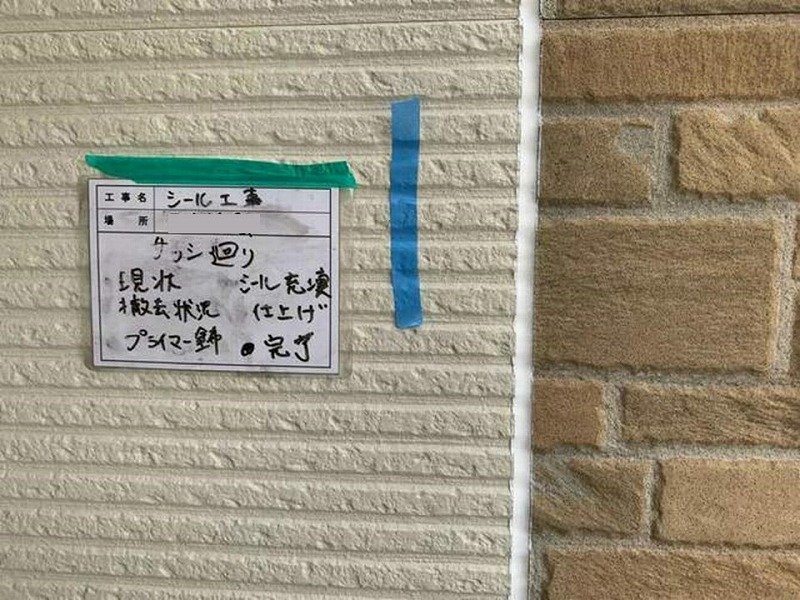 工事名 シール工事
場所
サッシ廻り
現状 シール充填
撤去状況 仕上げ
プライマー塗布 ●完了